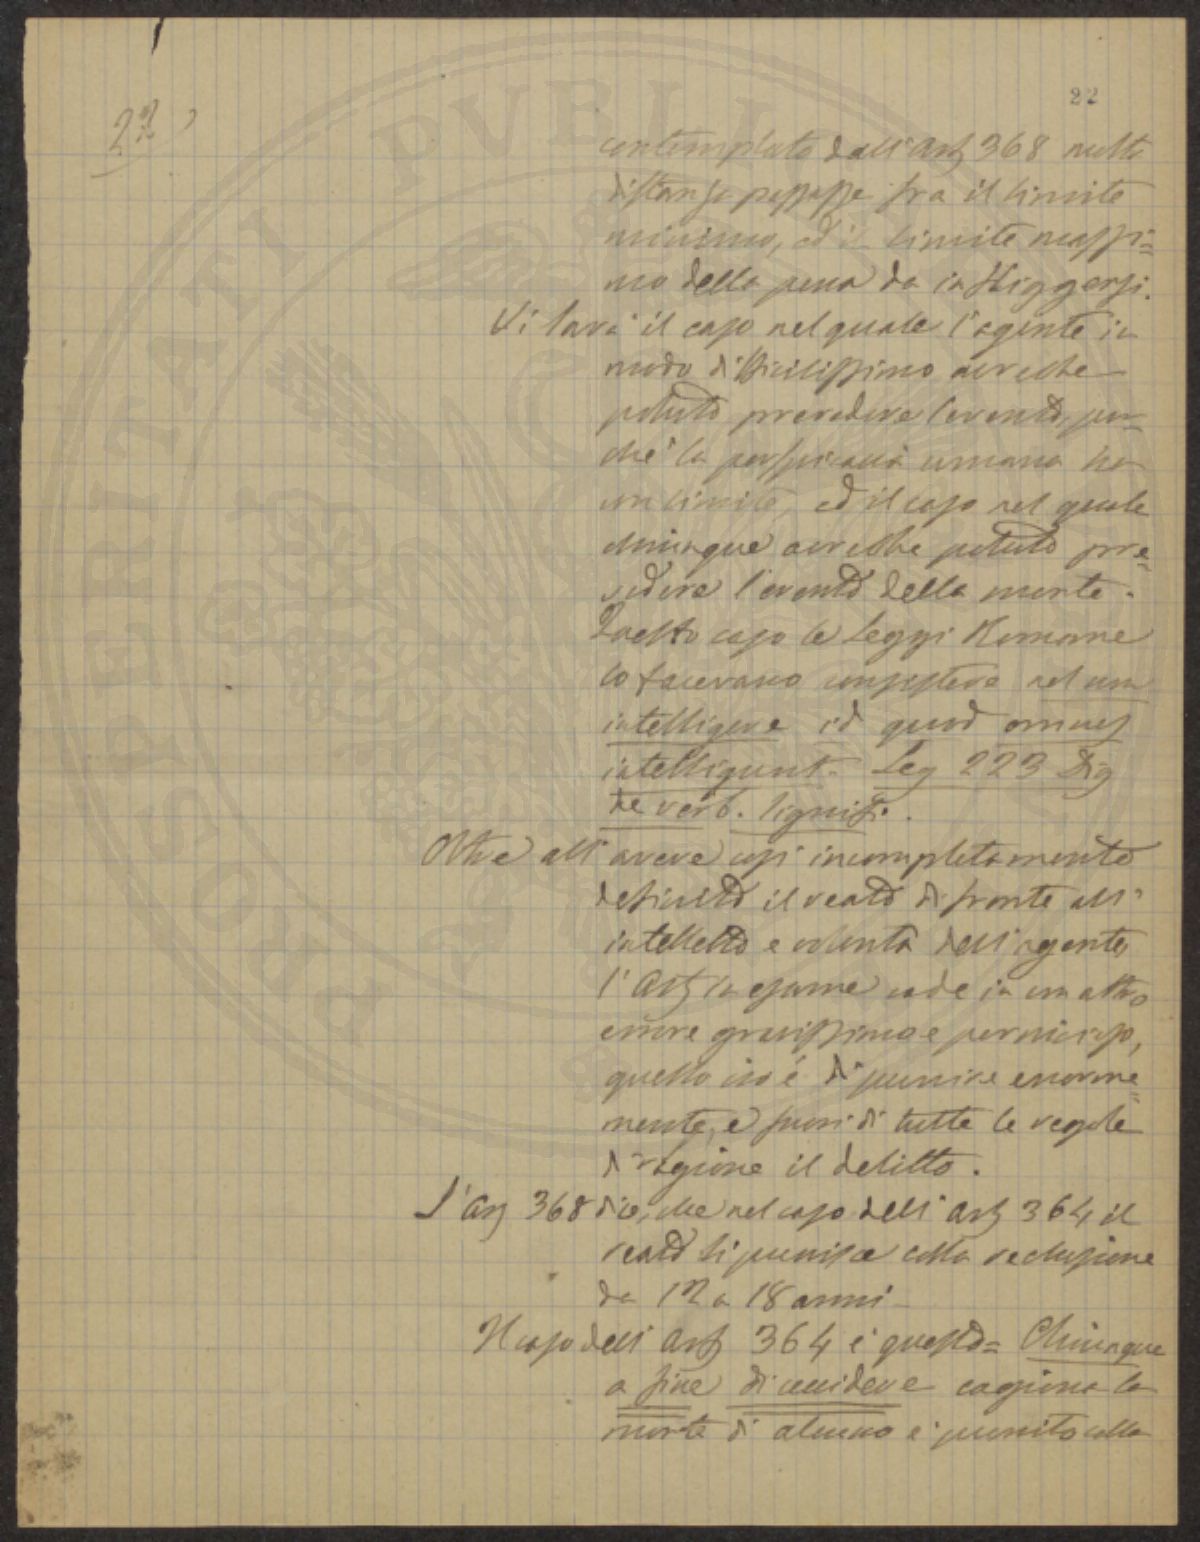 22
22
contemplato dall'Art 368 nella
distanza passasse fra il limite
minimo, ed il limite massi=
mo della pena da infliggersi.
Vi sarà il caso nel quale l'agente in
modo difficilissimo avrebbe
potuto prevedere l'evento, per=
chè la perspicacia umana ha
un limite, ed il caso nel quale
chiunque avrebbe potuto pre=
vedere l'evento della morte.
Questo caso le Leggi Romane
lo facevano consistere nel non
intelligere id quod omnes
intelligunt. Leg 223 Dig
de verb. signifi.
Oltre all'avere così incompletamente
definito il reato di fronte all'
intelletto e volontà dell'agente,
l'Art in esame cade in un altro
errore gravissimo e pernicioso,
quello cioè di punire enorme=
mente, e fuori di tutte le regole
di ragione il delitto.
L'Art 368 dice, che nel caso dell'Art 364 il
reato si punisce colla reclusione
da 12 a 18 anni_
Il caso dell'Art 364 è questo= Chiunque
a fine di uccidere cagiona la
morte di alcuno è punito colla
PROSPERITATI PVBLICAE